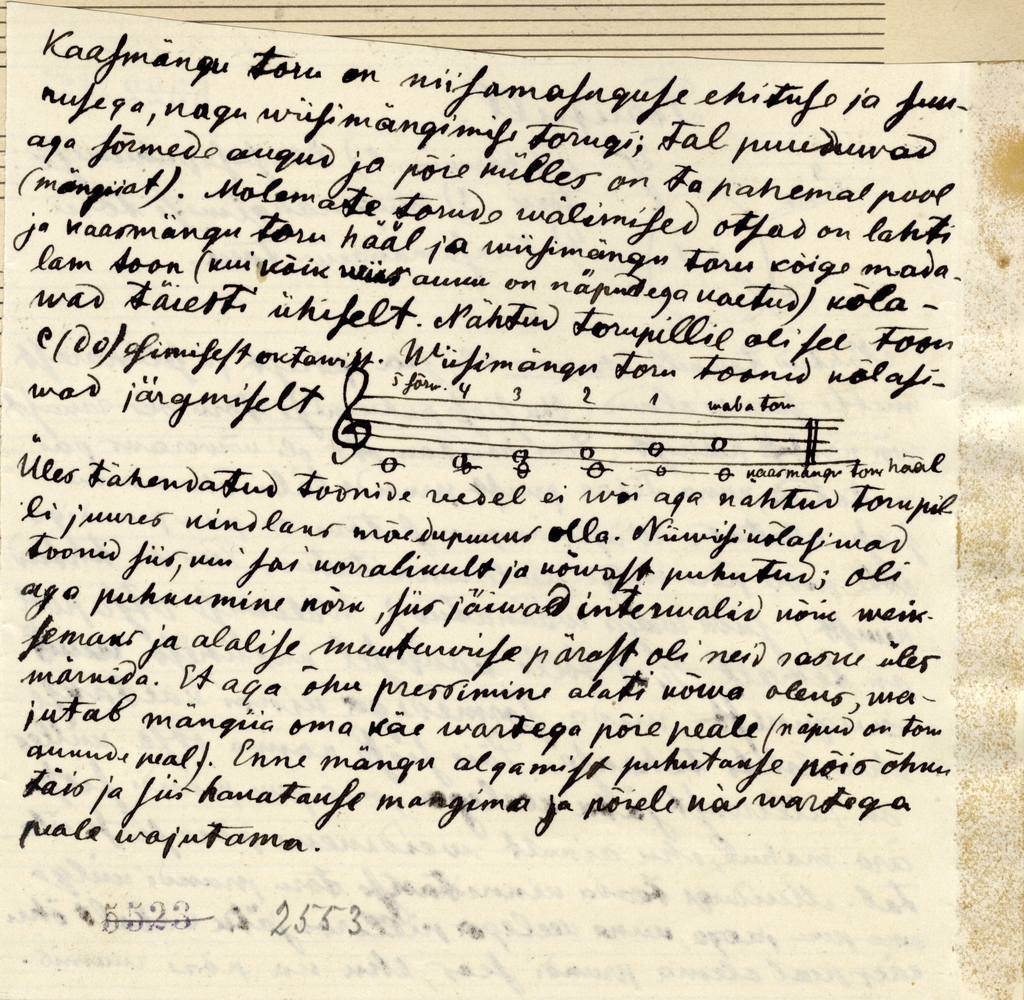 Kaasmängu toru on niisamasuguse ehituse ja suu-
rusega, nagu wiisimängimise torugi; tal puuduwad
aga sõrmede augud ja põie külles on ta pahemal pool
(mängiat). Mõlemate torude wälimised otsad on lahti
ja kaasmängu toru hääl ja wiisimängu toru kõige mada-
lam toon (kui kõik wiis auku on näpudega kaetud) kõla-
wad täiesti ühiselt. Nähtud torupillil oli see toon
c (do) esimisest oktawist. Wiisimängu toru toonid kõlasi-
wad järgmiselt
5 sõrm. 4 3 2 1 waba toru
kaasmängu toru hääl
Üles tähendatud toonide redel ei wõi aga nähtud torupil
li juures kindlaks mõedupuuks olla. Niiwiisi kõlasiwad
toonid siis, kui sai korralikult ja kõwast puhutud; oli
aga puhkumine nõrk, siis jäiwad interwalid kõik weik-
semaks ja alalise muutuwuse pärast oli neid raske üles
märkida. Et aga õhu pressimine alati kõwa oleks, wa-
jutab mängiia oma käe wartega põie peäle (näpud on toru
aukude peal). Enne mängu algamist puhutakse põis õhku
täis ja siis hakatakse mängima ja põiele käe wartega
peale wajutama.
5523 2553